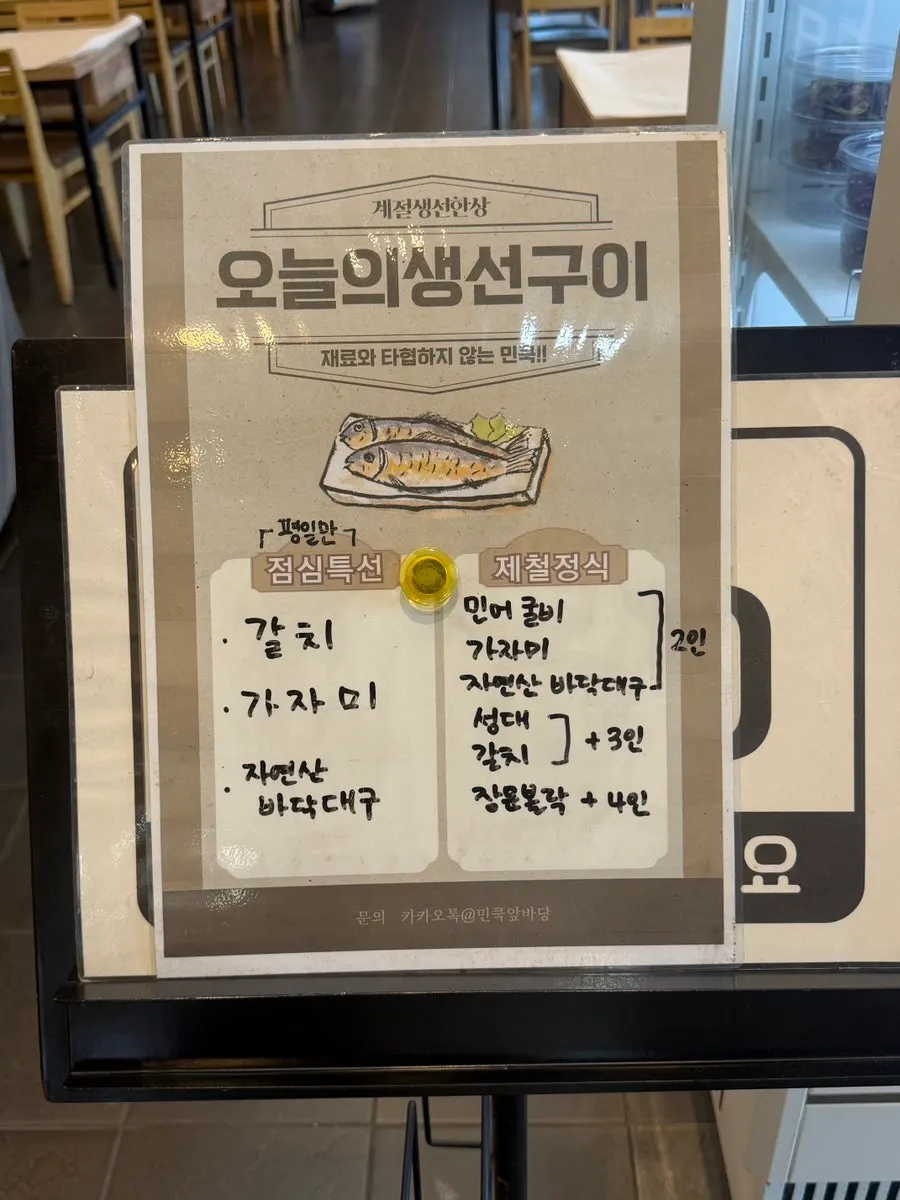 계절생선한상
오늘의생선구이
재료와 타협하지 않는 민쿡!!
「평일만」
점심특선
· 갈치
· 가자미
· 자연산
바닥대구
제철정식
민어 굴비
가자미
자연산 바닥대구
2인
성대
갈치
+ 3인
장문볼락 + 4인
문의 카카오톡@민쿡앞바당
요